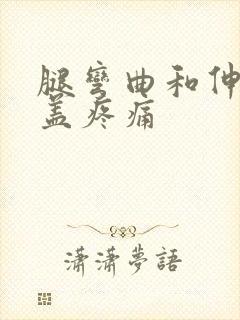 腿彎曲和伸
蓋疼痛
瀟瀟夢語